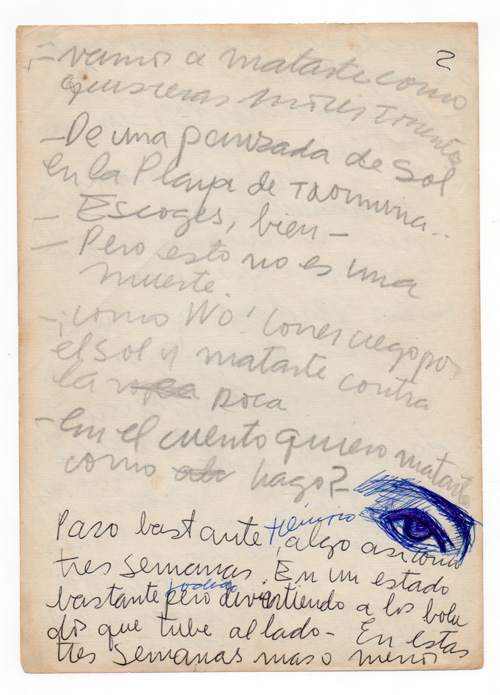 2
- vamos a matarte como
quisieras morir
- De una panzada de sol
en la Playa de Taormina..
- Escoges, bien -
- Pero esto no es una
muerte.
- ¡como No! Correr ciego por
el sol y matarte contra
la roca
- En el cuento quiero matarte
como hago?
Paso bastante tiempo, algo asi como
tres semanas. En un estado
bastante jodido pero divirtiendo a los bolu
dos que tube al lado - En estas
tres semanas mas o menos